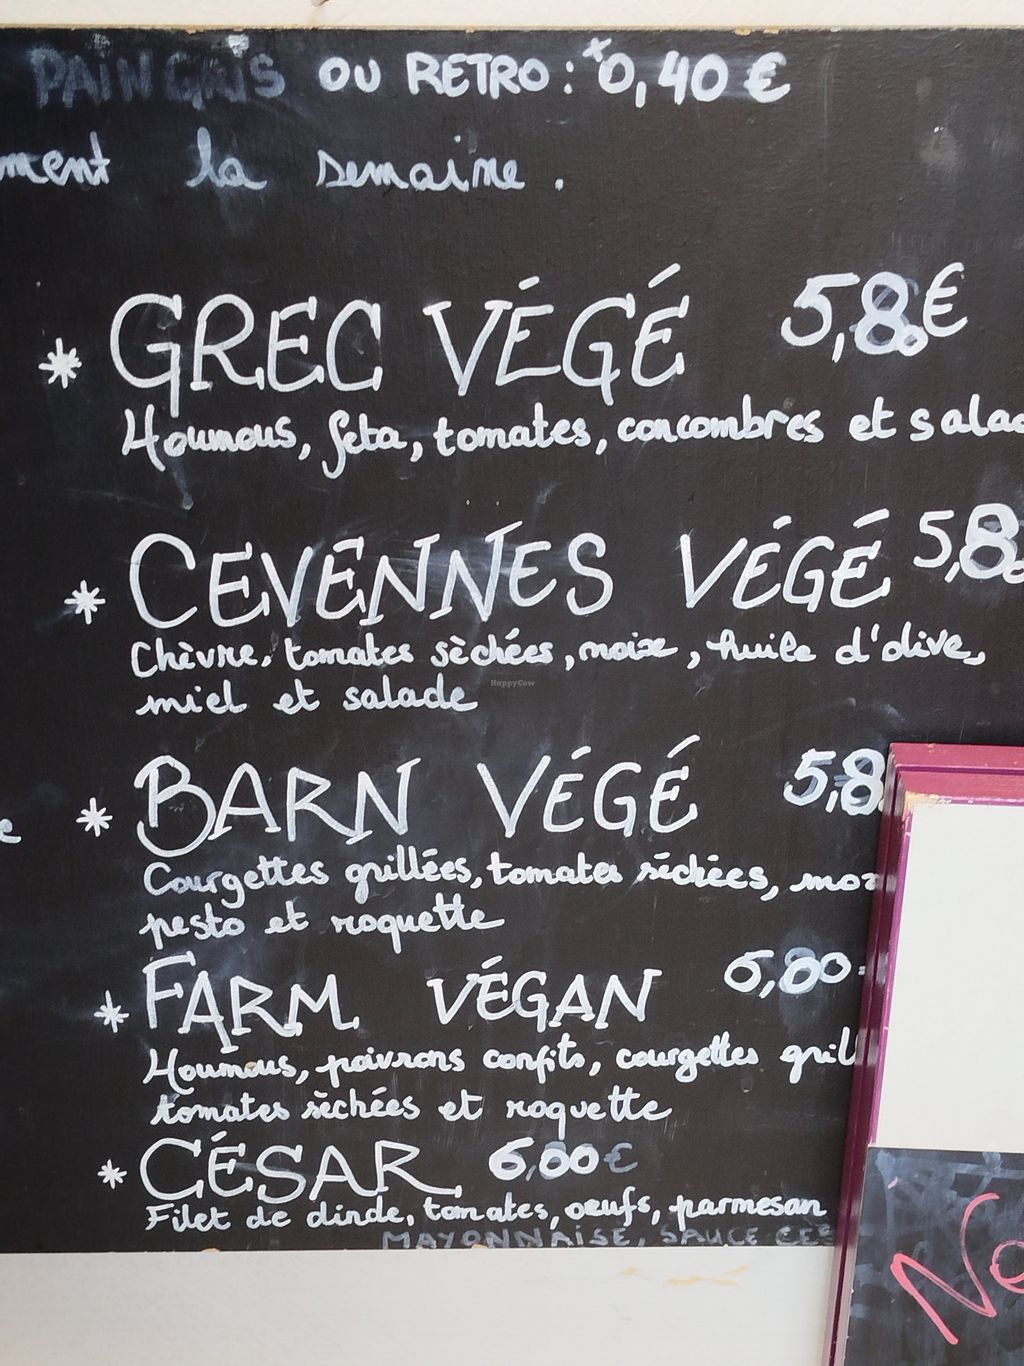 PAIN GRIS OU RETRO : +0,40 €
ment la semaine.
* GREC VÉGÉ 5,80€
Houmous, feta, tomates, concombres et salad
* CEVENNES VÉGÉ 5,80
Chèvre, tomates sèchées, noix, huile d'olive,
miel et salade
HappyCow
* BARN VÉGÉ 5,8
e
Courgettes grillées, tomates sèchées, moz
pesto et roquette
* FARM VÉGAN 6,00
Houmous, poivrons confits, courgettes grill
tomates sèchées et roquette
* CÉSAR 6,00€
Filet de dinde, tomates, oeufs, parmesan
MAYONNAISE, SAUCE CES
No